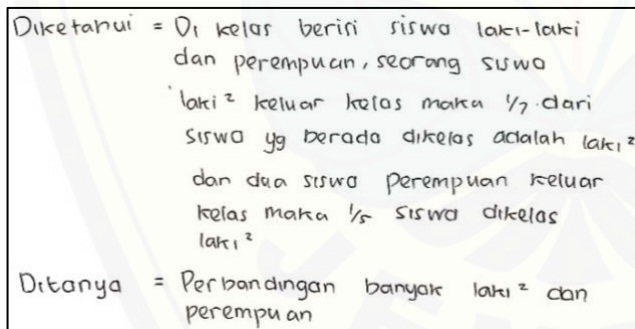 Diketahui = Di kelas berisi siswa laki-laki
dan perempuan, seorang siswa
laki² keluar kelas maka 1/7 dari
siswa yg berada dikelas adalah laki²
dan dua siswa perempuan keluar
kelas maka 1/5 siswa dikelas
laki²
Ditanya = Perbandingan banyak laki² dan
perempuan